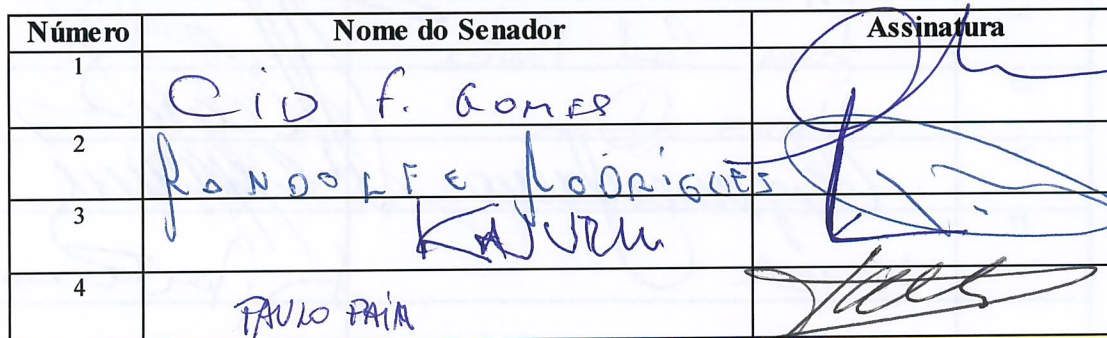 Número Nome do Senador Assinatura
1 CID F. GOMES
2 RANDOLFE RODRIGUES
3 KAJURU
4 PAULO PAIM